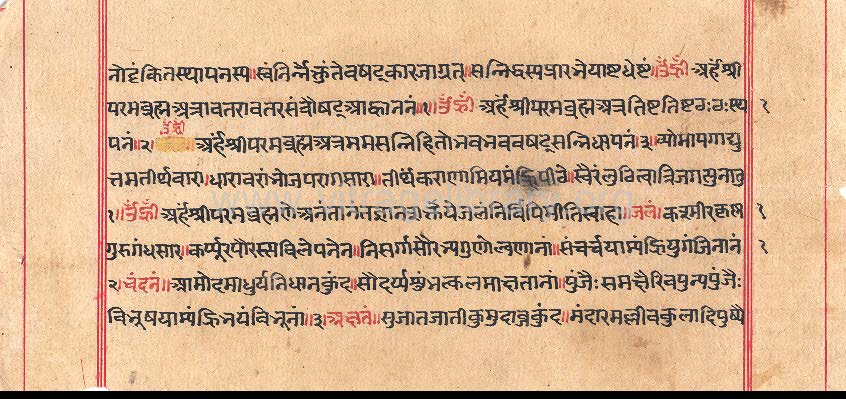 नोट्टंकितस्थापनस्प॥स्वंनिर्न्नेक्तुंतेवषट्कारजाग्रत्॥सान्निद्धस्पप्रारभेयाष्टधेष्टं॥ॐह्रीं अर्हंश्री
परमब्रुह्मअत्रावतरावतरसंवौषट्आह्वाननं॥१॥ॐह्रीं अर्हंश्रीपरमब्रुह्मअत्रतिष्टतिष्टठःठःस्थ १
पनं॥२॥ॐह्रीं अर्हंश्रीपरमब्रुह्मअत्रममसन्निहितोभवभववषट्सन्निधापनं॥३॥व्योमापगाद्यु
त्तमतीर्थवारा॥धारावरांभोजपरागसारा॥तीर्थंकराणामियमंह्रिपीठे॥स्वैरंलुवित्वात्रिजगत्पुनातु
१॥ॐह्रीं अर्हंश्रीपरमब्रुह्मणेअनंतानंतज्ञानशक्तयेजलंनिर्विपामीतिस्वाहा॥जलं॥कश्मीरकृष्ण १
गुरुगंधसार॥कर्प्पूरपौरस्त्यविलेपनेन॥निसर्गसौरभ्यगुणोल्वणानां॥संचर्चयाम्यंह्रियुगंजिनानं १
२॥चंदनं॥आमोदमाधुर्यनिधानकुंद॥सौंदर्यशुंभत्कलमाक्षतानां॥पुंजैःसमक्षैरिवपुन्यपुंजैः
विभूषयाम्यंह्रिभयंविभूनां॥३॥अक्षतं॥सुजातजातीकुमुदाब्जकुंद॥मंदारमल्लीवकुलादिपुष्पै